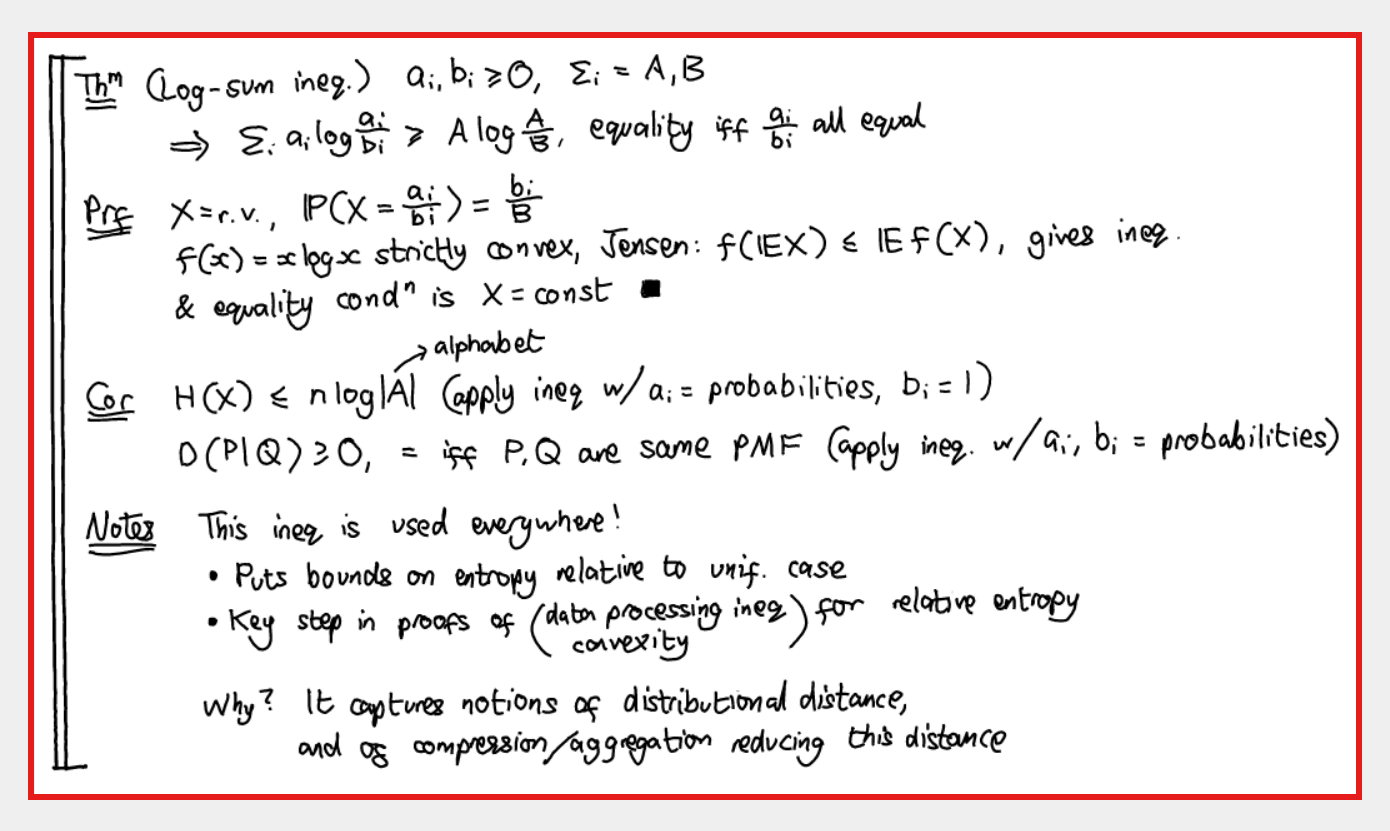 Thᵐ (Log-sum ineq.) aᵢ, bᵢ ⩾ 0, Σᵢ = A, B
⇒ Σᵢ aᵢ log aᵢ/bᵢ ⩾ A log A/B, equality iff aᵢ/bᵢ all equal
Prf X = r.v., ℙ(X = aᵢ/bᵢ) = bᵢ/B
f(x) = x log x strictly convex, Jensen: f(𝔼X) ≤ 𝔼f(X), gives ineq.
& equality condⁿ is X = const ■
→ alphabet
Cor H(X) ≤ n log|A| (apply ineq w/ aᵢ = probabilities, bᵢ = 1)
D(P|Q) ⩾ 0, = iff P, Q are same PMF (apply ineq. w/ aᵢ, bᵢ = probabilities)
Notes This ineq is used everywhere!
• Puts bounds on entropy relative to unif. case
• Key step in proofs of (data processing ineq) for relative entropy
convexity
Why? It captures notions of distributional distance,
and of compression/aggregation reducing this distance